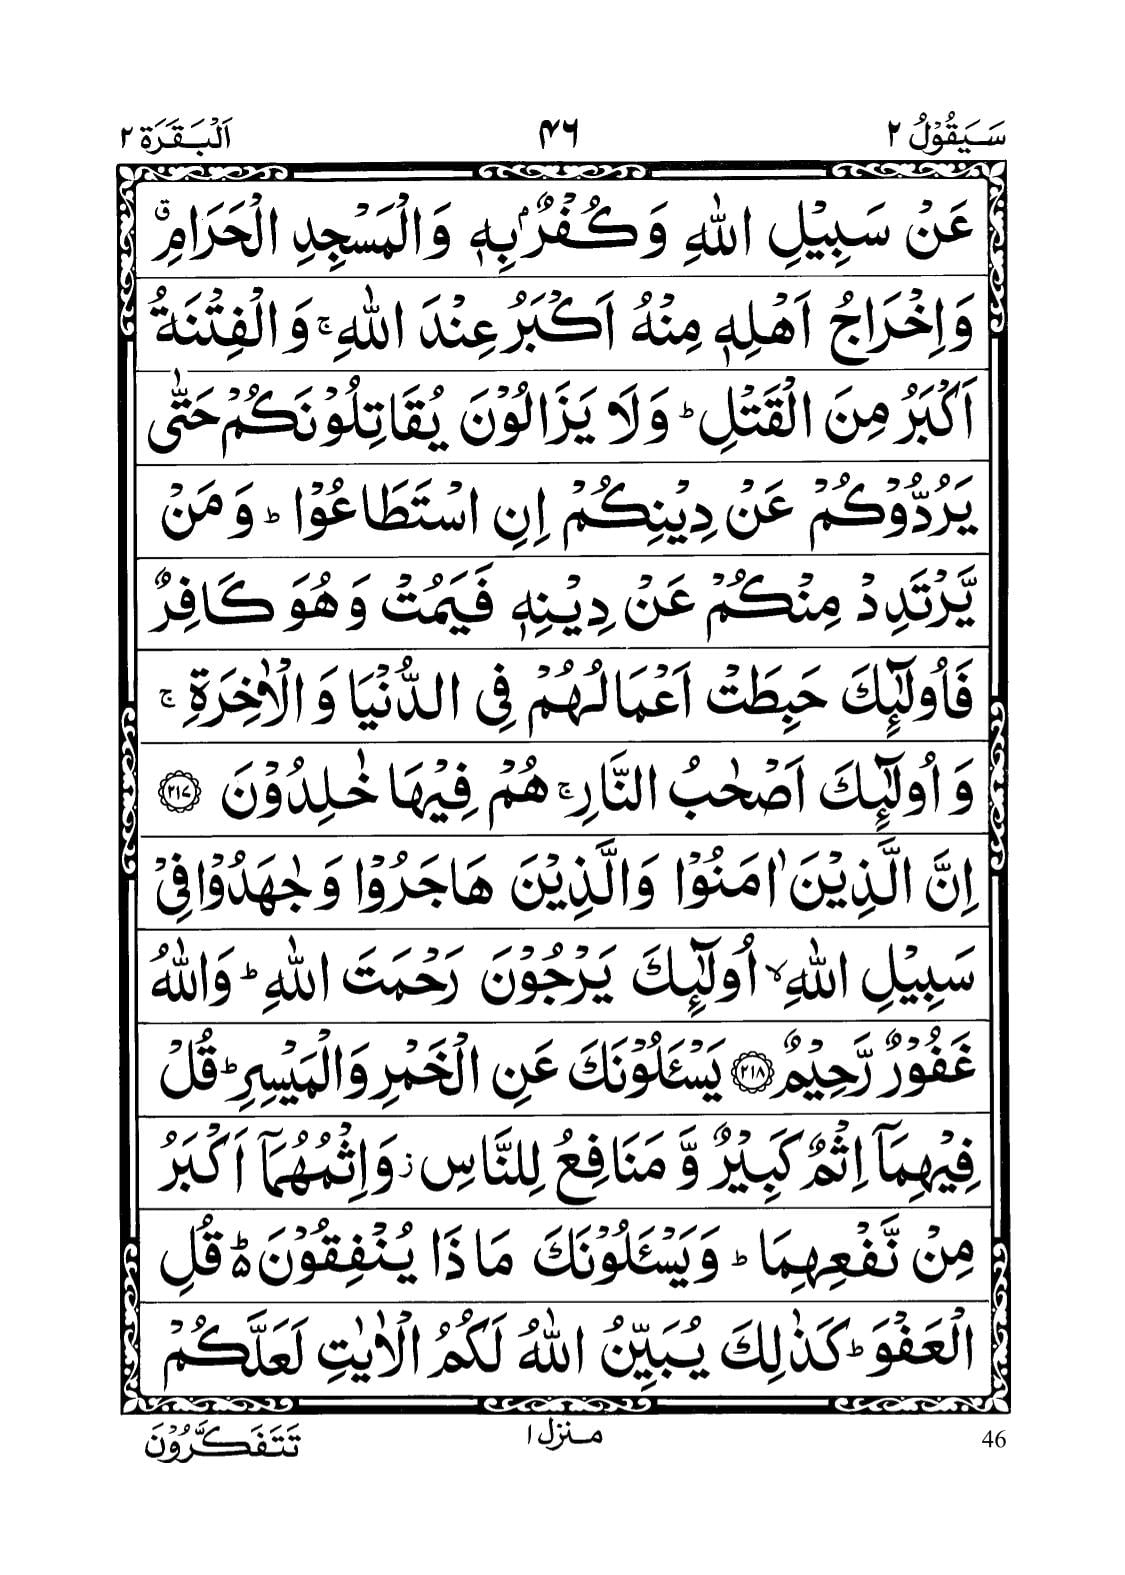 سَيَقُوْلُ ٢ ۴۶ اَلْبَقَرَة ٢
عَنْ سَبِيْلِ اللّٰهِ وَ كُفْرٌۢ بِهٖ وَ الْمَسْجِدِ الْحَرَامِ ۗ
وَ اِخْرَاجُ اَهْلِهٖ مِنْهُ اَكْبَرُ عِنْدَ اللّٰهِ ۚ وَ الْفِتْنَةُ
اَكْبَرُ مِنَ الْقَتْلِ ؕ وَ لَا يَزَالُوْنَ يُقَاتِلُوْنَكُمْ حَتّٰى
يَرُدُّوْكُمْ عَنْ دِيْنِكُمْ اِنِ اسْتَطَاعُوْا ؕ وَ مَنْ
يَّرْتَدِدْ مِنْكُمْ عَنْ دِيْنِهٖ فَيَمُتْ وَ هُوَ كَافِرٌ
فَاُولٰٓئِكَ حَبِطَتْ اَعْمَالُهُمْ فِى الدُّنْيَا وَ الْاٰخِرَةِ ۚ
وَ اُولٰٓئِكَ اَصْحٰبُ النَّارِ ۚ هُمْ فِيْهَا خٰلِدُوْنَ ﴿٢١٧﴾
اِنَّ الَّذِيْنَ اٰمَنُوْا وَ الَّذِيْنَ هَاجَرُوْا وَ جٰهَدُوْا فِىْ
سَبِيْلِ اللّٰهِ ۙ اُولٰٓئِكَ يَرْجُوْنَ رَحْمَتَ اللّٰهِ ؕ وَ اللّٰهُ
غَفُوْرٌ رَّحِيْمٌ ﴿٢١٨﴾ يَسْـَٔلُوْنَكَ عَنِ الْخَمْرِ وَ الْمَيْسِرِ ؕ قُلْ
فِيْهِمَآ اِثْمٌ كَبِيْرٌ وَّ مَنَافِعُ لِلنَّاسِ ز وَ اِثْمُهُمَآ اَكْبَرُ
مِنْ نَّفْعِهِمَا ؕ وَ يَسْـَٔلُوْنَكَ مَا ذَا يُنْفِقُوْنَ ۬ؕ قُلِ
الْعَفْوَ ؕ كَذٰلِكَ يُبَيِّنُ اللّٰهُ لَكُمُ الْاٰيٰتِ لَعَلَّكُمْ
46 منزل ١ تَتَفَكَّرُوْنَ